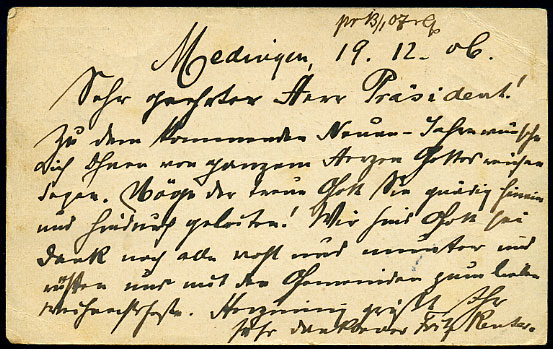 pr 13/1 07
Medingen, 19. 12. 06.
Sehr geehrter Herr Präsident!
Zu dem kommenden Neuen-Jahre wünsche
ich Ihnen von ganzem Herzen Gottes reichen
Segen. Möge der treue Gott Sie gnädig hinein
und hindurch geleiten! Wir sind Gott sei
Dank noch alle wohl und munter und
rüsten uns mit den Gemeinden zum lieben
Weihnachtsfeste. Herzinnig grüßt Ihr
sehr dankbarer Fritz